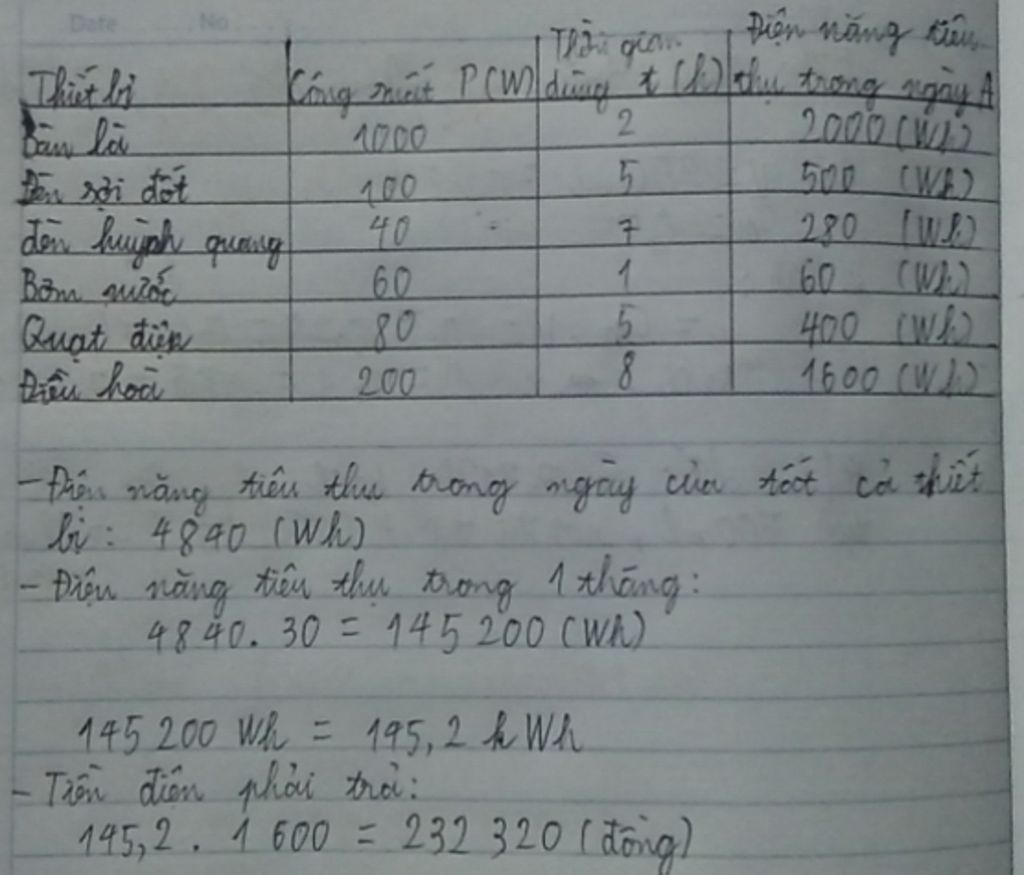 Date No
Thiết bị Công suất P(W) Thời gian dùng t (h) Điện năng tiêu thụ trong ngày A
Bàn là 1000 2 2000 (Wh)
Đèn sợi đốt 100 5 500 (Wh)
đèn huỳnh quang 40 7 280 (Wh)
Bơm nước 60 1 60 (Wh)
Quạt điện 80 5 400 (Wh)
Điều hoà 200 8 1600 (Wh)
- Điện năng tiêu thụ trong ngày của tất cả thiết
bị: 4840 (Wh)
- Điện năng tiêu thụ trong 1 tháng:
4840. 30 = 145 200 (Wh)
145 200 Wh = 145,2 kWh
- Tiền điện phải trả:
145,2 . 1 600 = 232 320 (đồng)